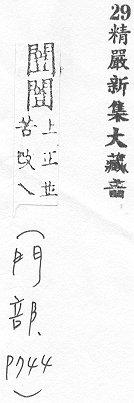 29
精嚴新集大藏音
上正並
苦改乀
(門部、P744)